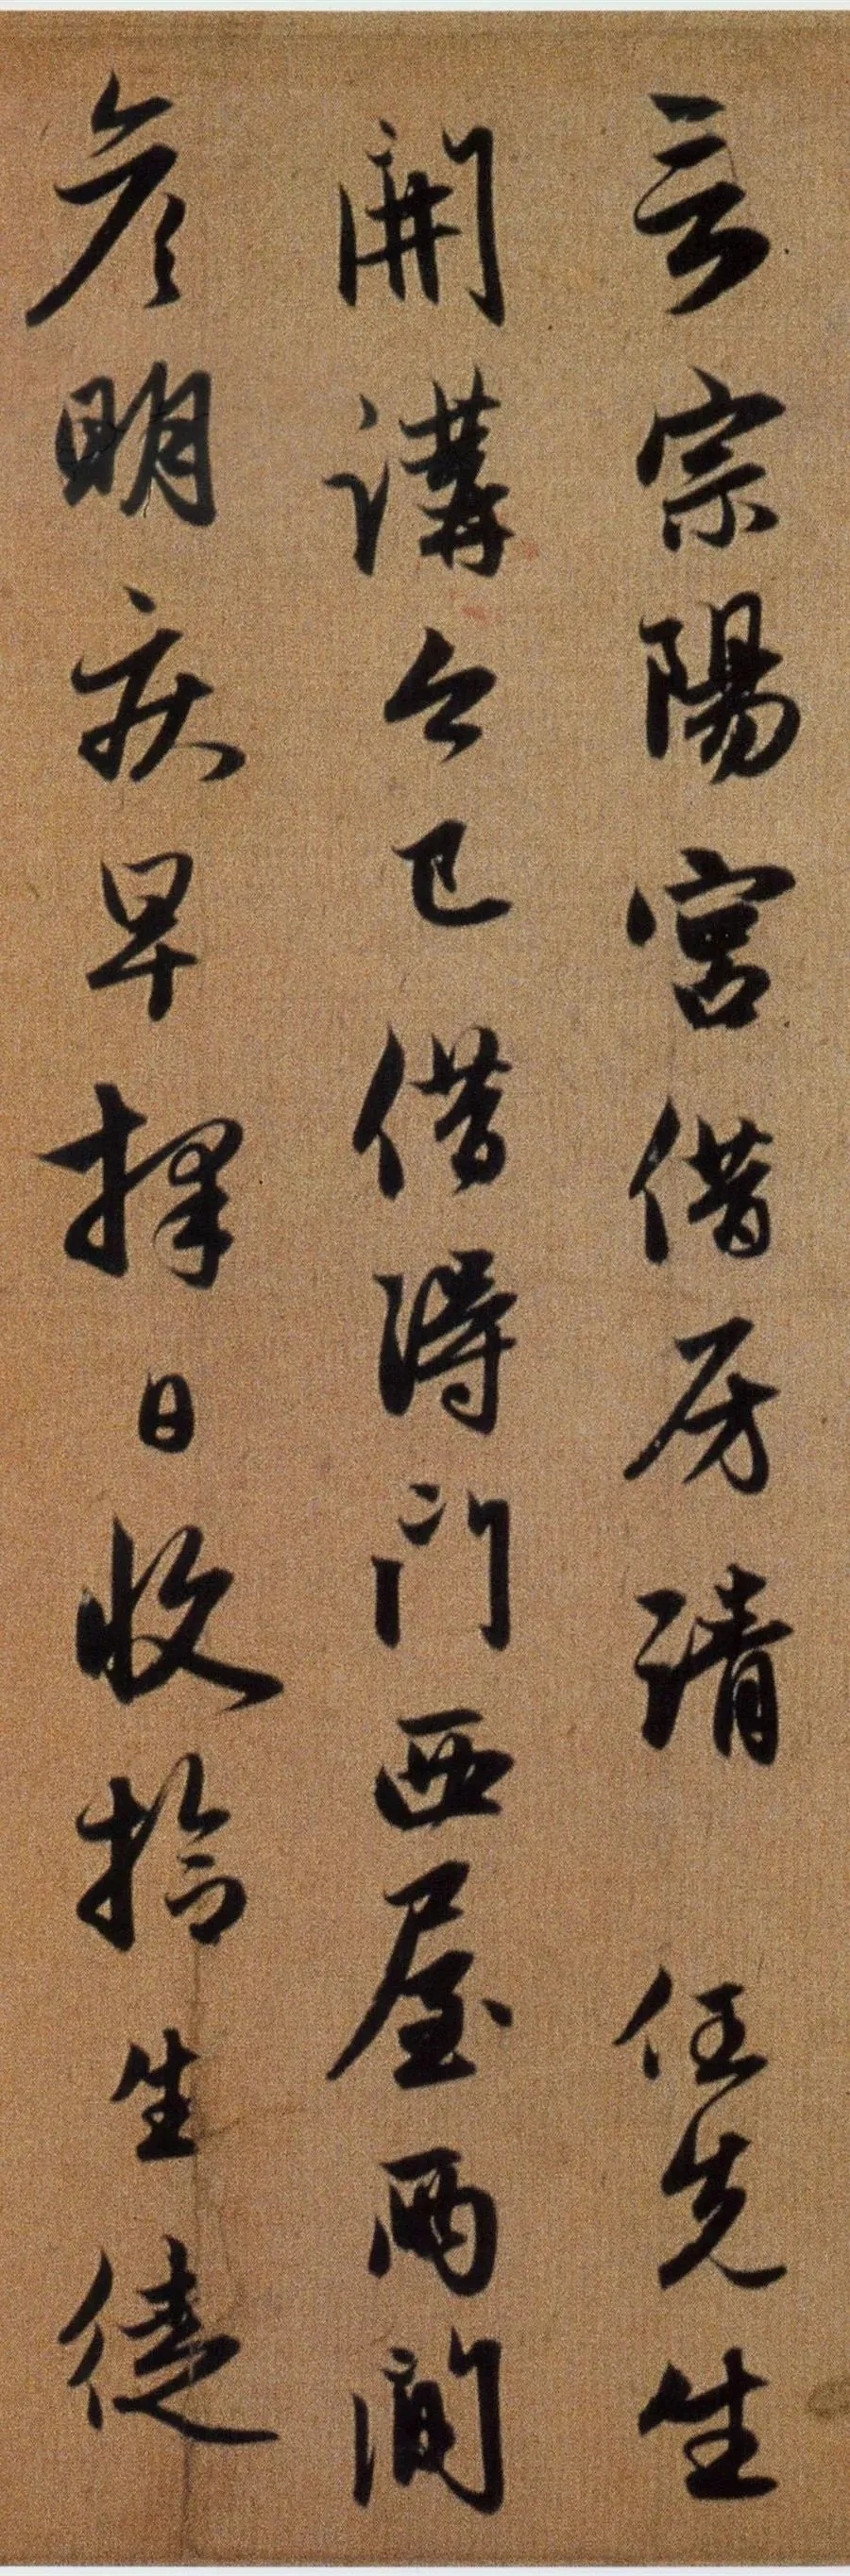 言宗陽宮借房請任先生
開講今已借得門西屋兩間
彥明疾早擇日收拾生徒